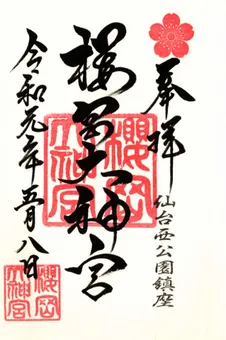 奉拝
仙台西公園鎮座
桜岡大神宮
櫻岡
大神宮
令和元年五月八日
櫻岡
大神宮